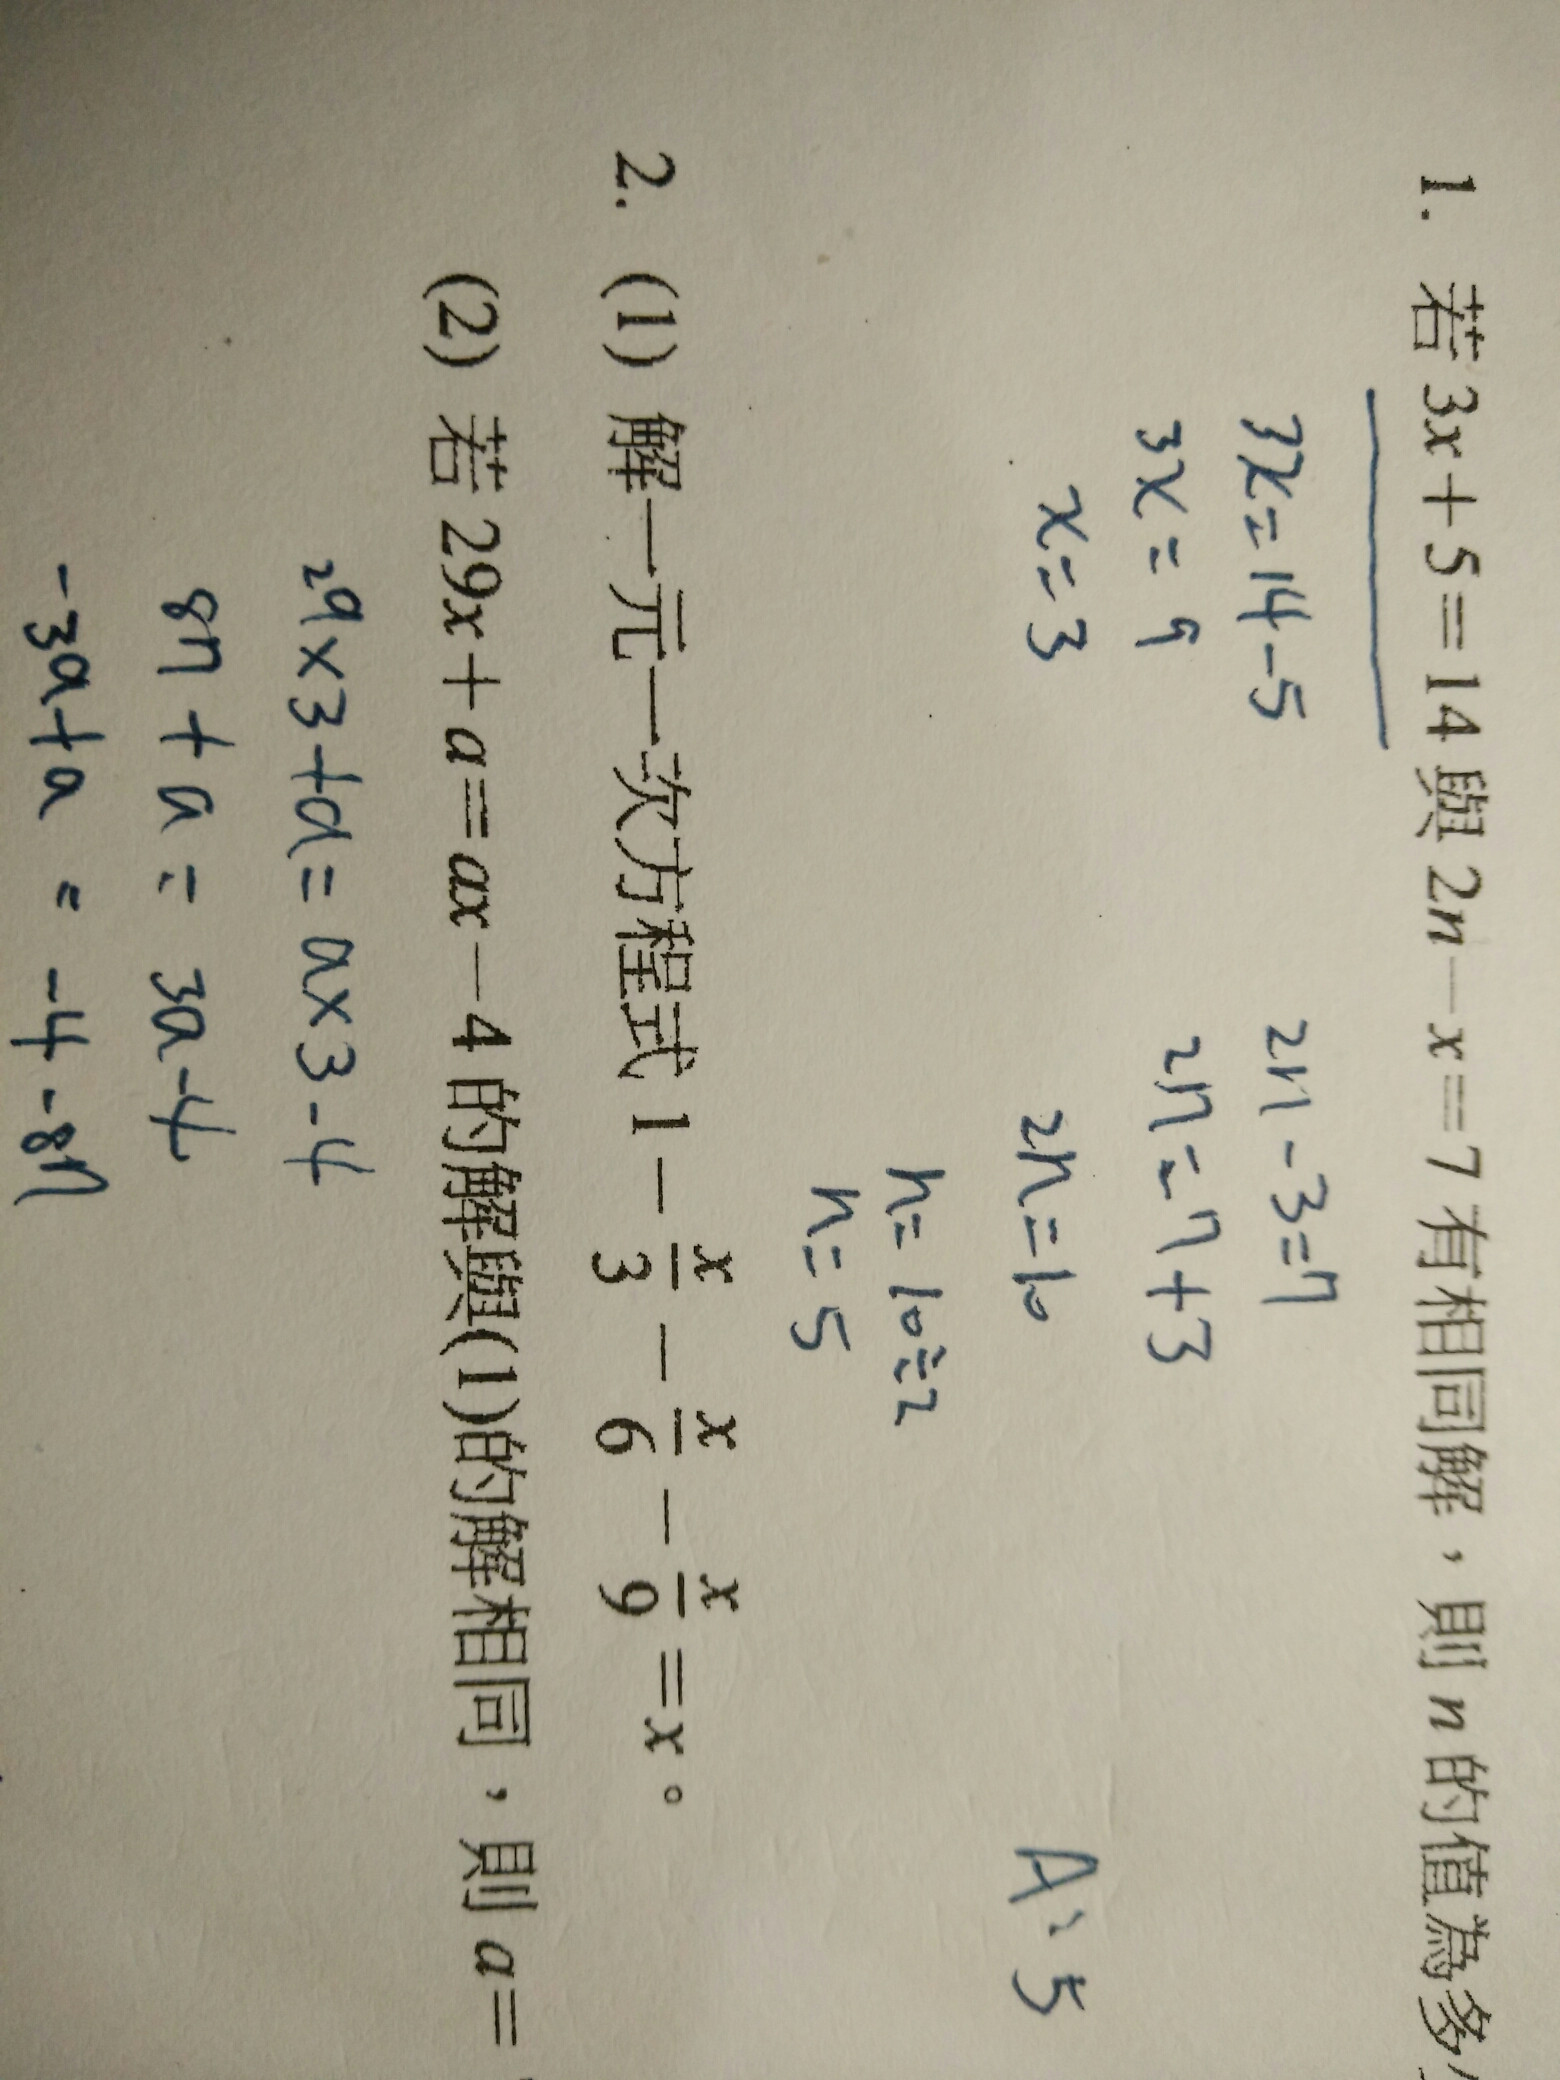 1. 若 3x+5=14 與 2n-x=7 有相同解，則 n 的值為多
3x=14-5
3x=9
x=3
2n-3=7
2n=7+3
2n=10
n=10÷2
n=5
A:5
2. (1) 解一元一次方程式 1-x/3-x/6-x/9=x。
(2) 若 29x+a=ax-4 的解與(1)的解相同，則 a=
29×3+a=a×3-4
87+a=3a-4
-3a+a=-4-87